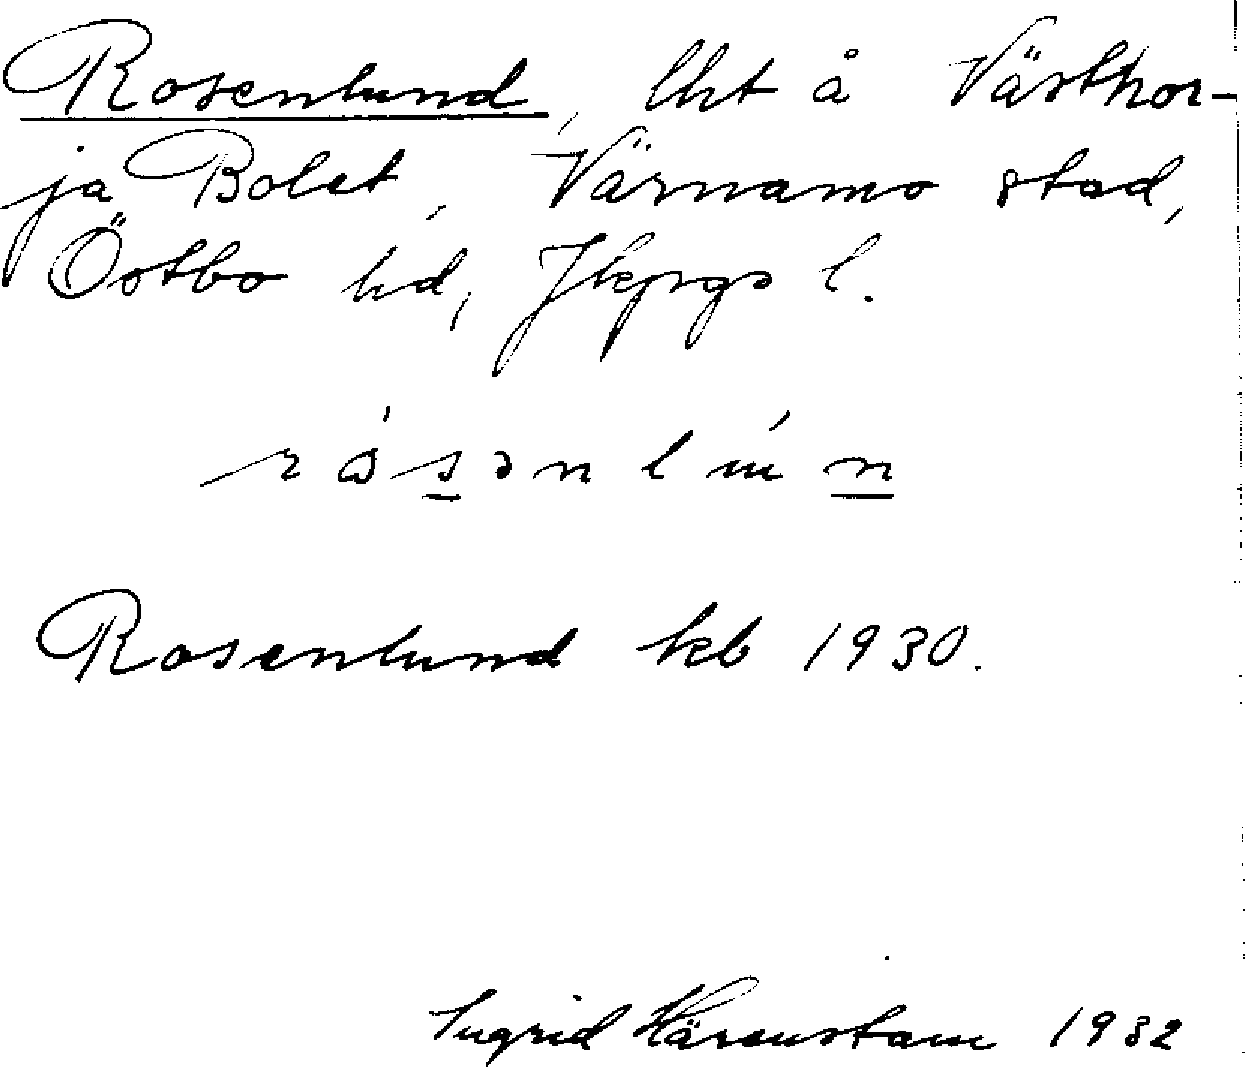 Rosenlund, lht å Västhor-
ja Bolet, Värnamo stad,
Östbo hd, Jkpgs l.
rósənlún
Rosenlund kb 1930.
Ingrid Härenstam 1932